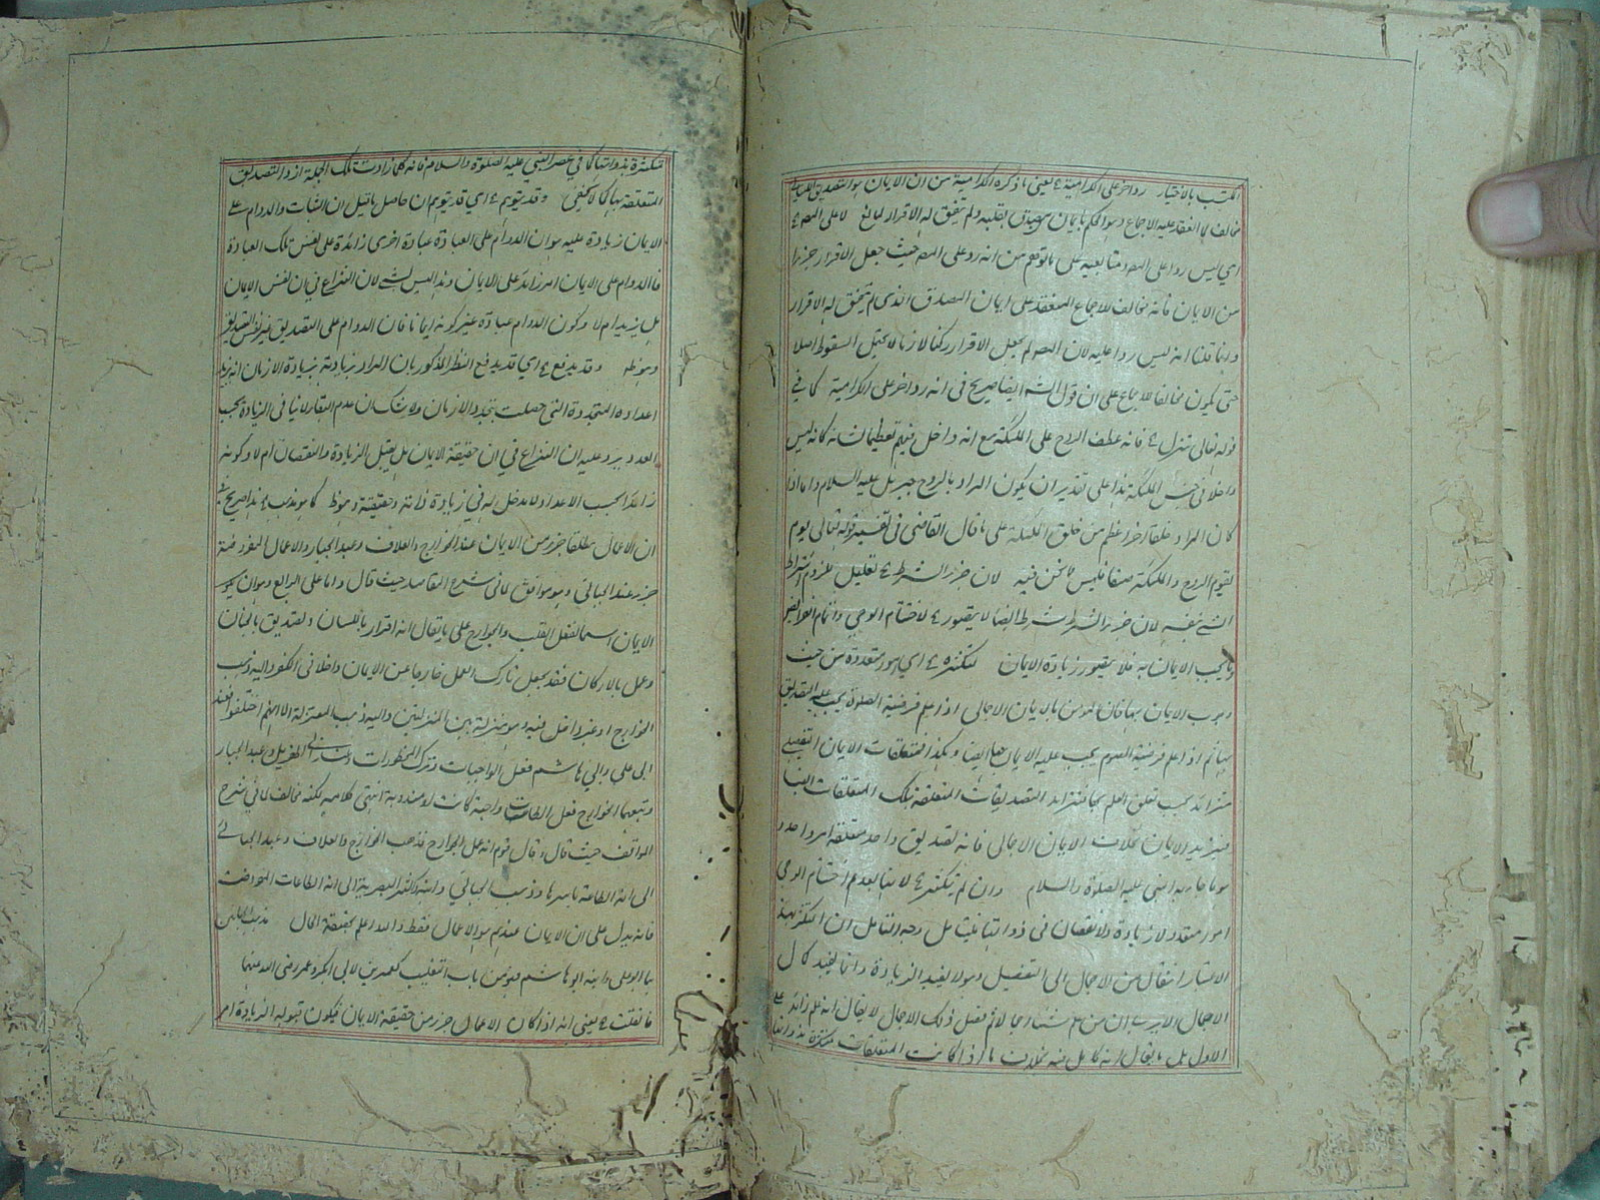 المكتسب بالاختيار رد آخر على الكرامية ء يعني ما ذكره الكرامية من ان الايمان هو التصديق اللساني
مخالف لما انعقد عليه الاجماع وهو الحكم بايمان من صدق بقلبه ولم يتفق له الاقرار لمانع لا على المص ء
اي ليس ردا على المص ومتابعيه على ما توهم من انه رد على المص حيث جعل الاقرار جزءا
من الايمان فانه مخالف للاجماع المنعقد على ايمان المصدق الذي لم يتفق له الاقرار
وانما قلنا انه ليس ردا عليه لان المص لم يجعل الاقرار ركنا لازما لا يحتمل السقوط اصلا
حتى يكون مخالفا للاجماع على ان قول الش ايضا صريح في انه رد آخر على الكرامية كما في
قوله تعالى تنزل ء فانه عطف الروح على الملئكة مع انه داخل فيهم تعظيما لشانه كانه ليس
داخلا في جنس الملئكة هذا على تقدير ان يكون المراد بالروح جبريل عليه السلام واما اذا
كان المراد خلقا آخر اعظم من خلق الملئكة على ما قال القاضي في تفسير قوله تعالى يوم
يقوم الروح والملئكة صفا فليس مما نحن فيه لان جزء الشرط ء تعليل للزوم اشتراط
الشئ بنفسه لان جزء الشرط شرط ايضا لا يتصور ء لاختتام الوحي واتمام الفرائض
وما يجب الايمان به فلا يتصور زيادة الايمان لتكثره ء اي امور متعددة من حيث
وجوب الايمان بها فان المؤمن بالايمان الاجمالي اذا علم فرضية الصلوة يجب عليه التصديق
بها ثم اذا علم فرضية الصوم يجب عليه الايمان بها ايضا وهكذا فمتعلقات الايمان التفصيلي
متزائد بحسب تعلق العلم بها فتتزايد التصديقات المتعلقة بتلك المتعلقات ايضا
فيتزايد الايمان بخلاف الايمان الاجمالي فانه تصديق واحد متعلقه امر واحد و
هو ما جاء به النبي عليه الصلوة والسلام وان لم يتكثر ء لانها بعد اختتام الوحي
امور متعددة لا زيادة ولا نقصان في ذواتها فليتامل وجه التامل ان التكثر بهذا
الاعتبار انتقال من الاجمال الى التفصيل وهو لا يفيد الزيادة وانما يفيد كمال
الاجمال الا يرى ان من علم شيئا اجمالا ثم فصل ذلك الاجمال لا يقال انه علم زائد على
الاول بل يقال انه كامل منه بخلاف ما اذا كانت المتعلقات متكثرة بذواتها
متكثرة بذواتها كما في عصر النبي عليه الصلوة والسلام فانه كلما زادت تلك الجملة ازداد التصديق
المتعلقة بها كما لا يخفى وقد يتوهم ء اي قد يتوهم ان حاصل ما قيل ان الثبات والدوام على
الايمان زيادة عليه هو ان الدوام على العبادة عبادة اخرى زائدة على نفس تلك العبادة
فالدوام على الايمان امر زائد على الايمان وهذا ليس بشئ لان النزاع في ان نفس الايمان
هل يزيد ام لا وكون الدوام عبادة غير كونه ايمانا فان الدوام على التصديق غير نفس التصديق
وهو ظاهر وقد يدفع ء اي قد يدفع النظر المذكور بان المراد زيادته بزيادة الازمان انه يزيد
اعداده المتجددة التي حصلت بتجدد الازمان ولا شك ان عدم البقاء لا ينافي الزيادة بحسب
العدد ويرد عليه ان النزاع في ان حقيقة الايمان هل يقبل الزيادة والنقصان ام لا وكونه
زائدا بحسب الاعداد لا مدخل له في زيادة ذاته وحقيقته وهو ظ كما هو مذهب ء هذا صريح في
ان الاعمال مطلقا جزء من الايمان عند الخوارج والعلاف وعبد الجبار والاعمال المفروضة
جزء عند الجبائي وهو موافق لما في شرح المقاصد حيث قال واما على الرابع وهو ان يكون
الايمان اسما لفعل القلب والجوارح على ما يقال انه اقرار باللسان وتصديق بالجنان
وعمل بالاركان فقد يجعل تارك العمل خارجا عن الايمان داخلا في الكفر واليه ذهب
الخوارج او غير داخل فيه وهو منزلة بين المنزلتين واليه ذهب المعتزلة الا انهم اختلفوا فعند
ابي علي وابي هاشم فعل الواجبات وترك المحظورات وعند ابي الهذيل وعبد الجبار
وتبعهما الخوارج فعل الطاعات واجبة كانت او مندوبة انتهى كلامه لكنه مخالف لما في شرح
المواقف حيث قال وقال قوم انه عمل الجوارح فذهب الخوارج والعلاف وعبد الجبار
الى انه الطاعة باسرها وذهب الجبائي وابنه واكثر البصرية الى انه الطاعات المفترضة
فانه يدل على ان الايمان عندهم هو الاعمال فقط والله اعلم بحقيقة الحال مذهب الجبائيين
هما ابو علي وابنه ابو هاشم فهو من باب التغليب كالعمرين لابي بكر وعمر رضي الله عنهما
فان قلت ء يعني انه اذا كان الاعمال جزء من حقيقة الايمان فيكون قبوله الزيادة امر